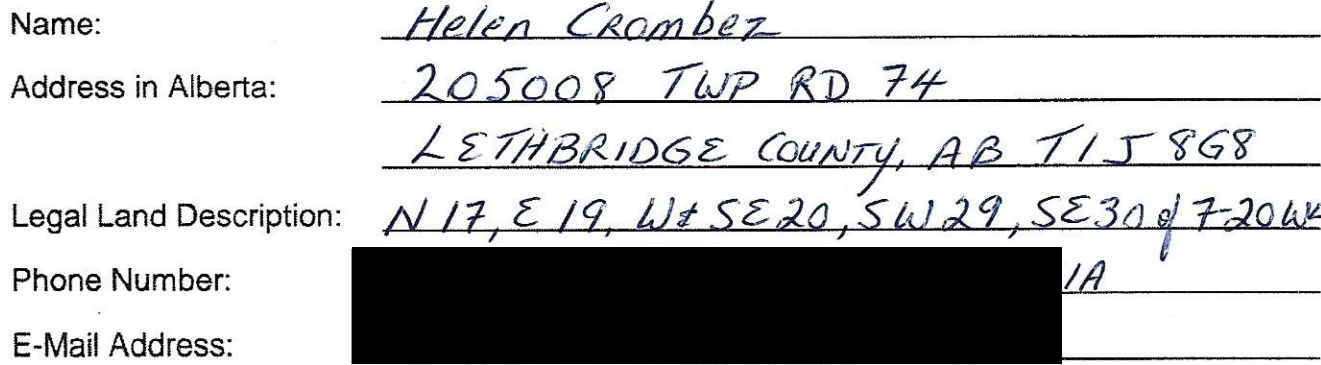 Name: Helen Crombez
Address in Alberta: 205008 TWP RD 74
LETHBRIDGE COUNTY, AB T1J 8G8
Legal Land Description: N 17, E 19, W & SE 20, SW 29, SE 30 of 7-20 W4
Phone Number: 1A
E-Mail Address: